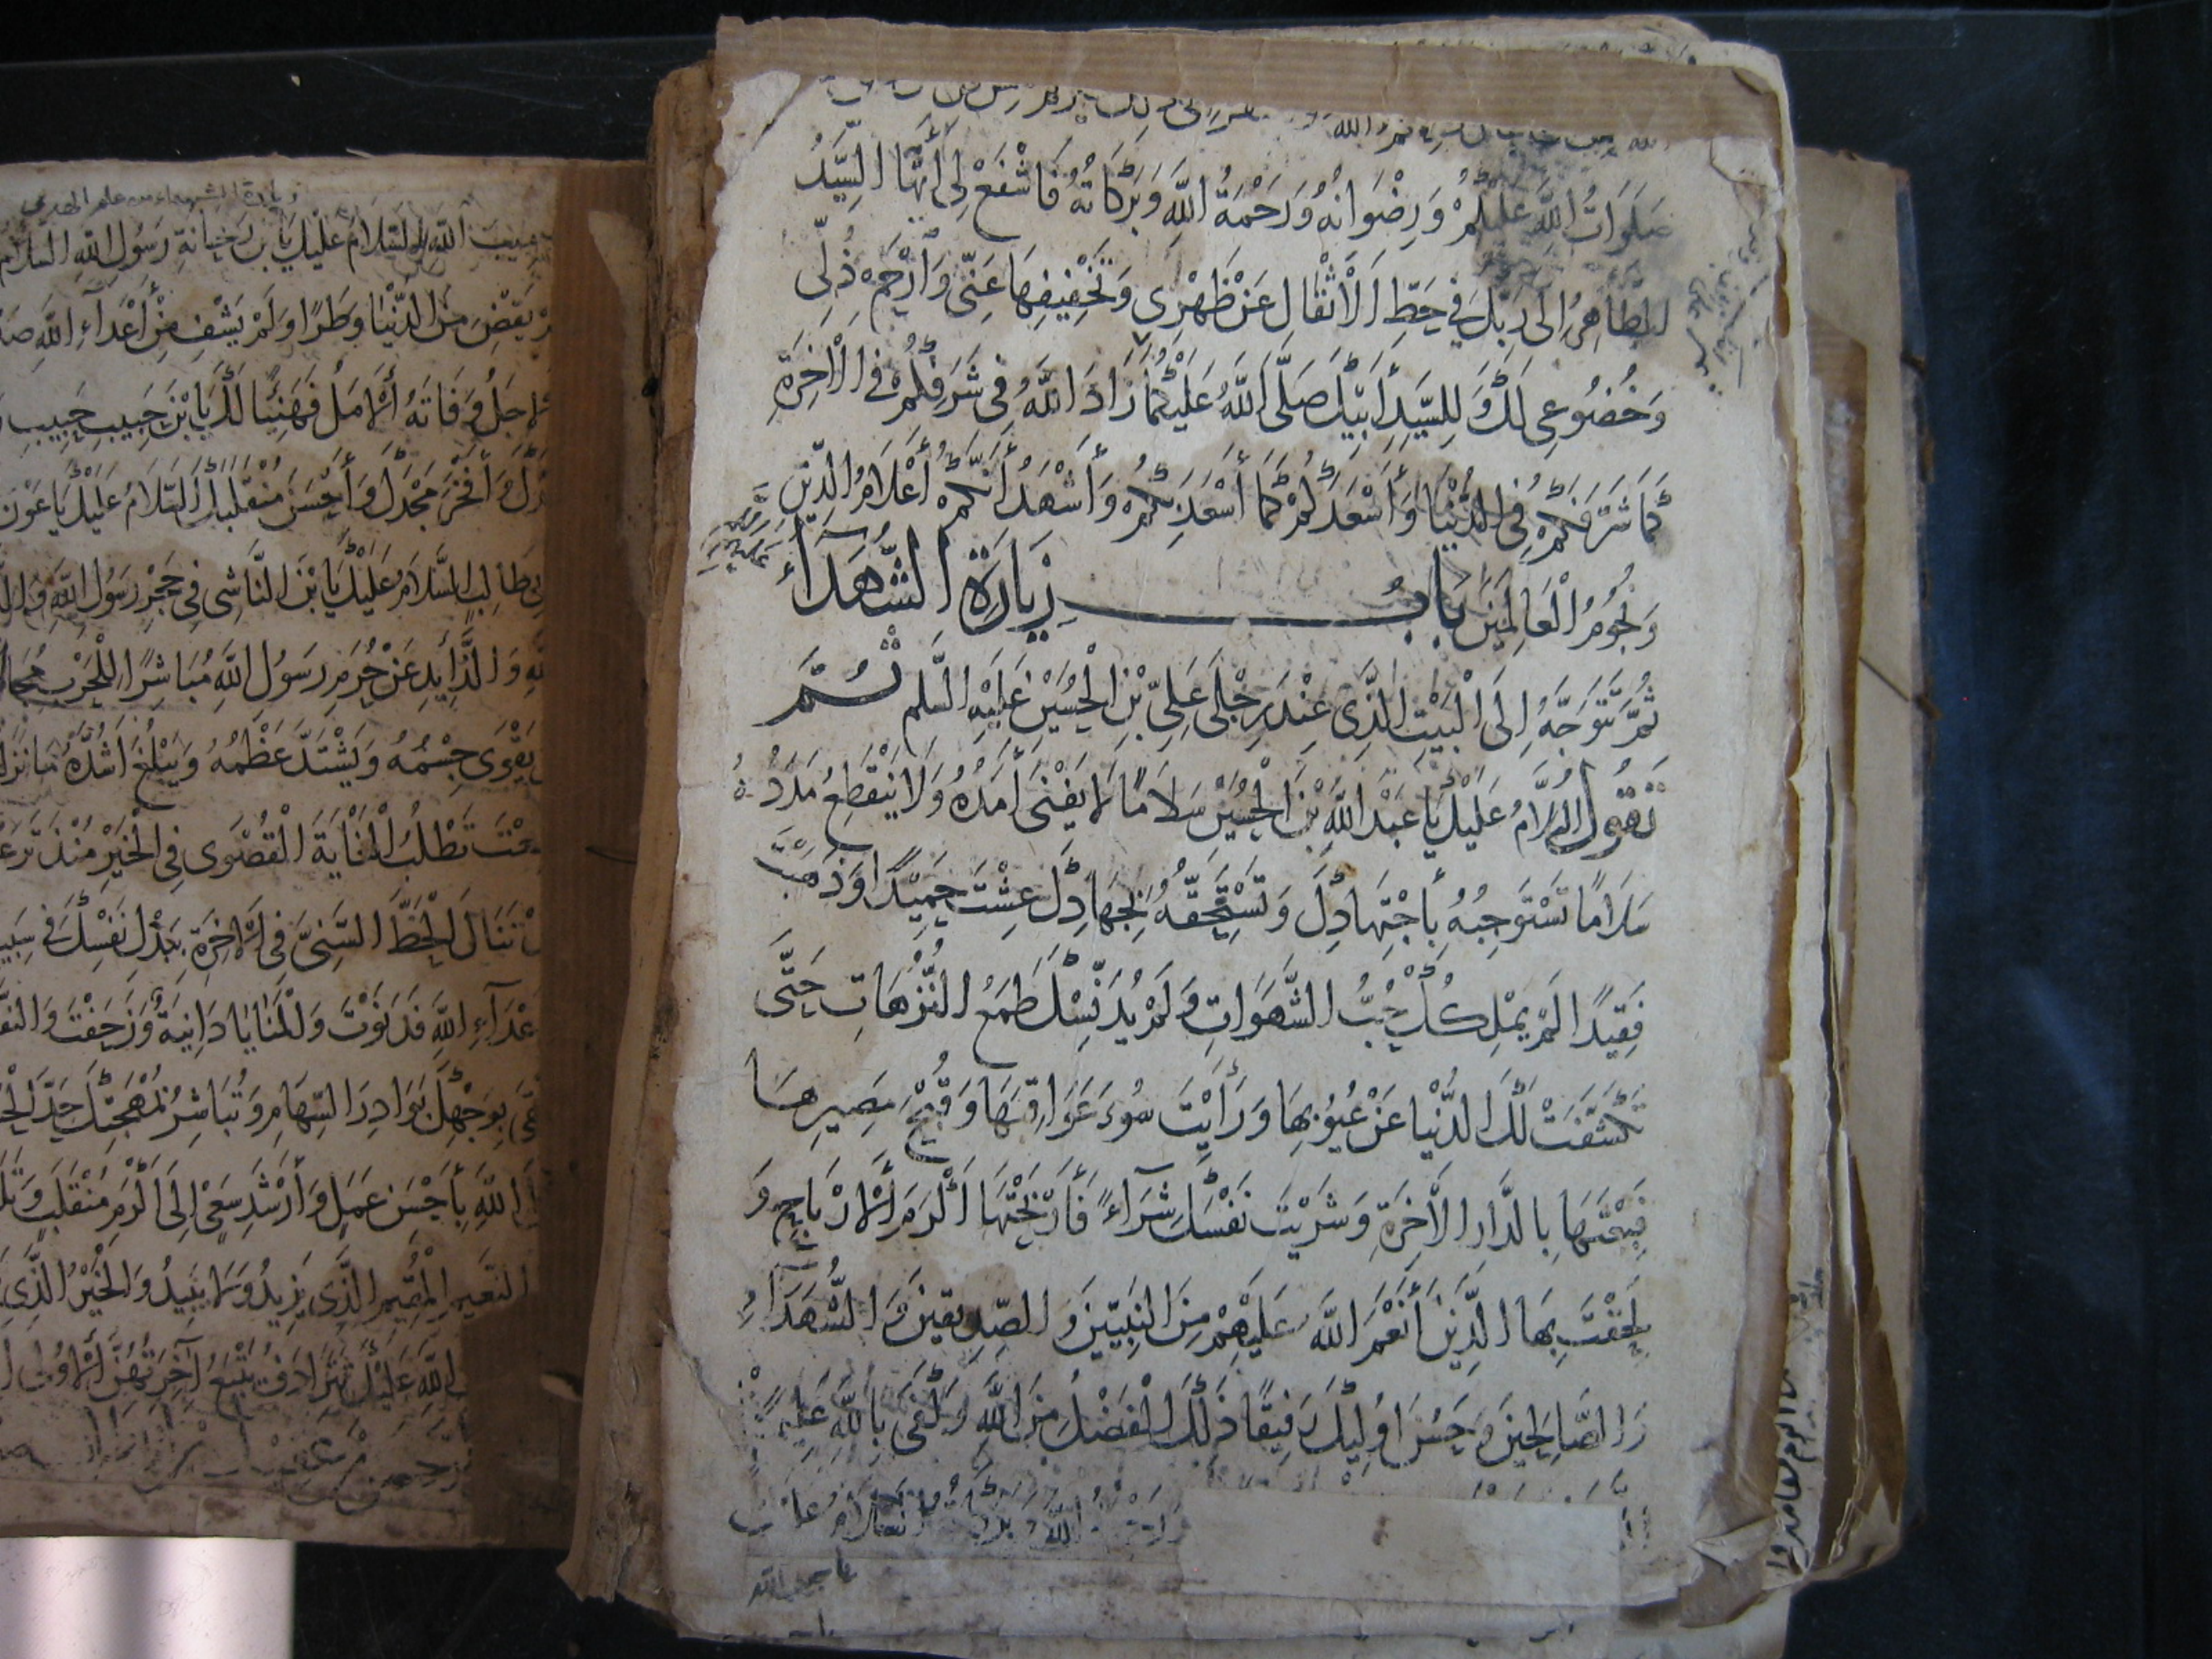 صَلَوَاتُ اللَّهِ عَلَيْكُمْ وَرِضْوَانُهُ وَرَحْمَةُ اللَّهِ وَبَرَكَاتُهُ فَاشْفَعْ لِي أَيُّهَا السَّيِّدُ
الطَّاهِرُ إِلَى رَبِّكَ فِي حَطِّ الْأَثْقَالِ عَنْ ظَهْرِي وَتَخْفِيفِهَا عَنِّي وَارْحَمْ ذُلِّي
وَخُضُوعِي لَكَ وَلِلسَّيِّدِ أَبِيكَ صَلَّى اللَّهُ عَلَيْكُمَا زَادَ اللَّهُ فِي شَرَفِكُمْ فِي الْآخِرَةِ
كَمَا شَرَّفَكُمْ فِي الدُّنْيَا وَأَسْعَدَكُمْ كَمَا أَسْعَدَ بِكُمْ وَأَشْهَدُ أَنَّكُمْ أَعْلَامُ الدِّينِ
وَنُجُومُ الْعَالَمِينَ بَابُ زِيَارَةِ الشُّهَدَاءِ
ثُمَّ تَتَوَجَّهُ إِلَى الْبَيْتِ الَّذِي عِنْدَ رِجْلَيْ عَلِيِّ بْنِ الْحُسَيْنِ عَلَيْهِ السَّلم ثُمَّ
تَقُولُ السَّلَامُ عَلَيْكَ يَا عَبْدَ اللَّهِ بْنَ الْحُسَيْنِ سَلَامًا لَا يَفْنَى أَمَدُهُ وَلَا يَنْقَطِعُ مَدَدُهُ
سَلَامًا تَسْتَوْجِبُهُ بِاجْتِهَادِكَ وَتَسْتَحِقُّهُ بِجِهَادِكَ عِشْتَ حَمِيدًا وَذَهَبْتَ
فَقِيدًا لَمْ يَمِلْ بِكَ حُبُّ الشَّهَوَاتِ وَلَمْ يُدَنِّسْكَ طَمَعُ النُّزْهَاتِ حَتَّى
تَكَشَّفَتْ لَكَ الدُّنْيَا عَنْ عُيُوبِهَا وَرَأَيْتَ سُوءَ عَوَاقِبِهَا وَقُبْحَ مَصِيرِهَا
فَبِعْتَهَا بِالدَّارِ الْآخِرَةِ وَشَرَيْتَ نَفْسَكَ شِرَاءً فَأَرْبَحْتَهَا أَكْرَمَ الْأَرْبَاحِ وَ
لَحِقْتَ بِهَا الَّذِينَ أَنْعَمَ اللَّهُ عَلَيْهِمْ مِنَ النَّبِيِّينَ وَالصِّدِّيقِينَ وَالشُّهَدَاءِ
وَالصَّالِحِينَ وَحَسُنَ أُولَئِكَ رَفِيقًا ذَلِكَ الْفَضْلُ مِنَ اللَّهِ وَكَفَى بِاللَّهِ عَلِيمًا
السَّلَامُ عَلَيْكَ يَا بْنَ رَيْحَانَةِ رَسُولِ اللَّهِ السَّلَام
يَقْضِ مِنَ الدُّنْيَا وَطَرًا وَلَمْ يَشْفِ مِنْ أَعْدَاءِ اللَّهِ
الْأَجَلُ وَفَاتَهُ الْأَمَلُ فَهَنِيئًا لَكَ يَا بْنَ حَبِيبِ حَبِيبِ
وَأَفْخَرَ مَجْدَكَ وَأَحْسَنَ مُنْقَلَبَكَ السَّلَامُ عَلَيْكَ يَا عَوْنَ
طَالِبٍ السَّلَامُ عَلَيْكَ يَا بْنَ النَّاشِي فِي حَجْرِ رَسُولِ اللَّهِ
وَالذَّائِدِ عَنْ حُرَمِ رَسُولِ اللَّهِ مُبَاشِرًا لِلْحَرْبِ
يَقْوَى جِسْمُهُ وَيَشْتَدَّ عَظْمُهُ وَيَبْلُغَ أَشُدَّهُ
تَطْلُبُ الْغَايَةَ الْقُصْوَى فِي الْخَيْرِ
تَنَالَ الْحَظَّ السَّنِيَّ فِي الْآخِرَةِ بِبَذْلِ نَفْسِكَ فِي
اللَّهِ فَدَنَوْتَ وَالْمَنَايَا دَانِيَةٌ وَزَحَفْتَ
بِوَجْهِكَ بَوَادِرَ السِّهَامِ وَتُبَاشِرُ بِمُهْجَتِكَ حَدَّ
اللَّهِ بِأَحْسَنِ عَمَلٍ وَأَرْشَدِ سَعْيٍ إِلَى أَكْرَمِ مُنْقَلَبٍ
النَّعِيمِ الْمُقِيمِ الَّذِي يَزِيدُ وَلَا يَبِيدُ وَالْخَيْرُ الَّذِي